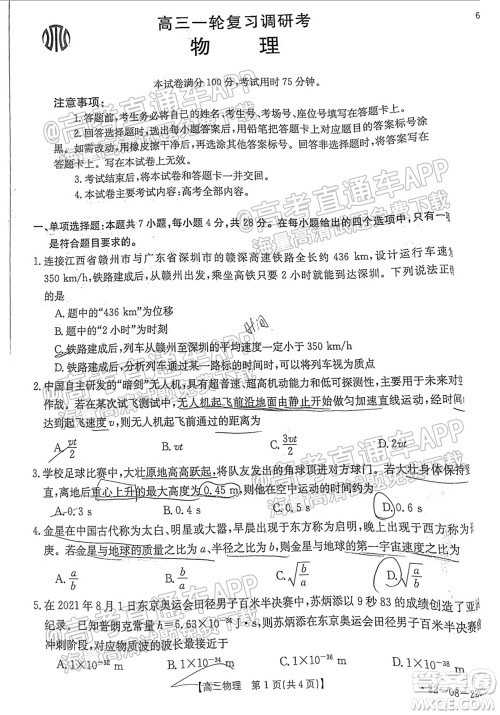 6
高三一轮复习调研考
物 理
本试卷满分100分,考试用时75分钟。
注意事项:
1.答题前,考生务必将自己的姓名、考生号、考场号、座位号填写在答题卡上。
2.回答选择题时,选出每小题答案后,用铅笔把答题卡对应题目的答案标号涂
黑。如需改动,用橡皮擦干净后,再选涂其他答案标号。回答非选择题时,将答案写在
答题卡上。写在本试卷上无效。
3.考试结束后,将本试卷和答题卡一并交回。
4.本试卷主要考试内容:高考全部内容。
一、单项选择题:本题共7小题,每小题4分,共28分。在每小题给出的四个选项中,只有一项
是符合题目要求的。
1.连接江西省赣州市与广东省深圳市的赣深高速铁路全长约436 km,设计运行车速
350 km/h,铁路建成后,从赣州出发,乘坐高铁只要2小时即可到达深圳。下列说法正
的是
A.题中的“436 km”为位移
B.题中的“2小时”为时刻
时间
C.铁路建成后,列车从赣州至深圳的平均速度一定小于350 km/h
D.铁路建成后,分析列车通过某一路标的时间时,可以将列车视为质点
2.中国自主研发的“暗剑”无人机,具有超音速、超高机动能力和低可探测性
若在某次试飞测试中,无人机起飞前沿地面由静止开始做匀加速直线运动,
飞起飞的速度v,则无人机起飞前通过的距离为
A. vt/2
B. vt
C. 3vt/2
D. 2vt
3.学校足球比赛中,大壮原地高高跃起,将足球顶进对方球门。若大壮身体保持
直,离地后重心上升的最大高度为0.45 m,则他在空中运动的时间约为
A.0.3 s
B.0.4 s
C.0.5 s
D.0.6 s
4.金星在中国古代称为太白、明星或大嚣,早晨出现于东方称为启明,晚上出现于
庚。若金星与地球的质量之比为a,半径之比为b,则金星与地球的第一宇宙速度
A. a/b
B. b/a
C. √(b/a)
D. √(a/b)
5.在2021年8月1日东京奥运会田径男子百米半决赛中,苏炳添以9秒83的成绩
纪录。已知普朗克常量h=6.63×10⁻³⁴ J·s,则在东京奥运会田径男子百米半决赛
对应物质波的波长最接近
A.1×10⁻³⁸ m
B.1×10⁻³⁶ m
C.1×10⁻³⁴ m
D.1×10⁻³² m
高三物理 第1页(共4页)
@高考直通车APP
海量高清试题免费下载